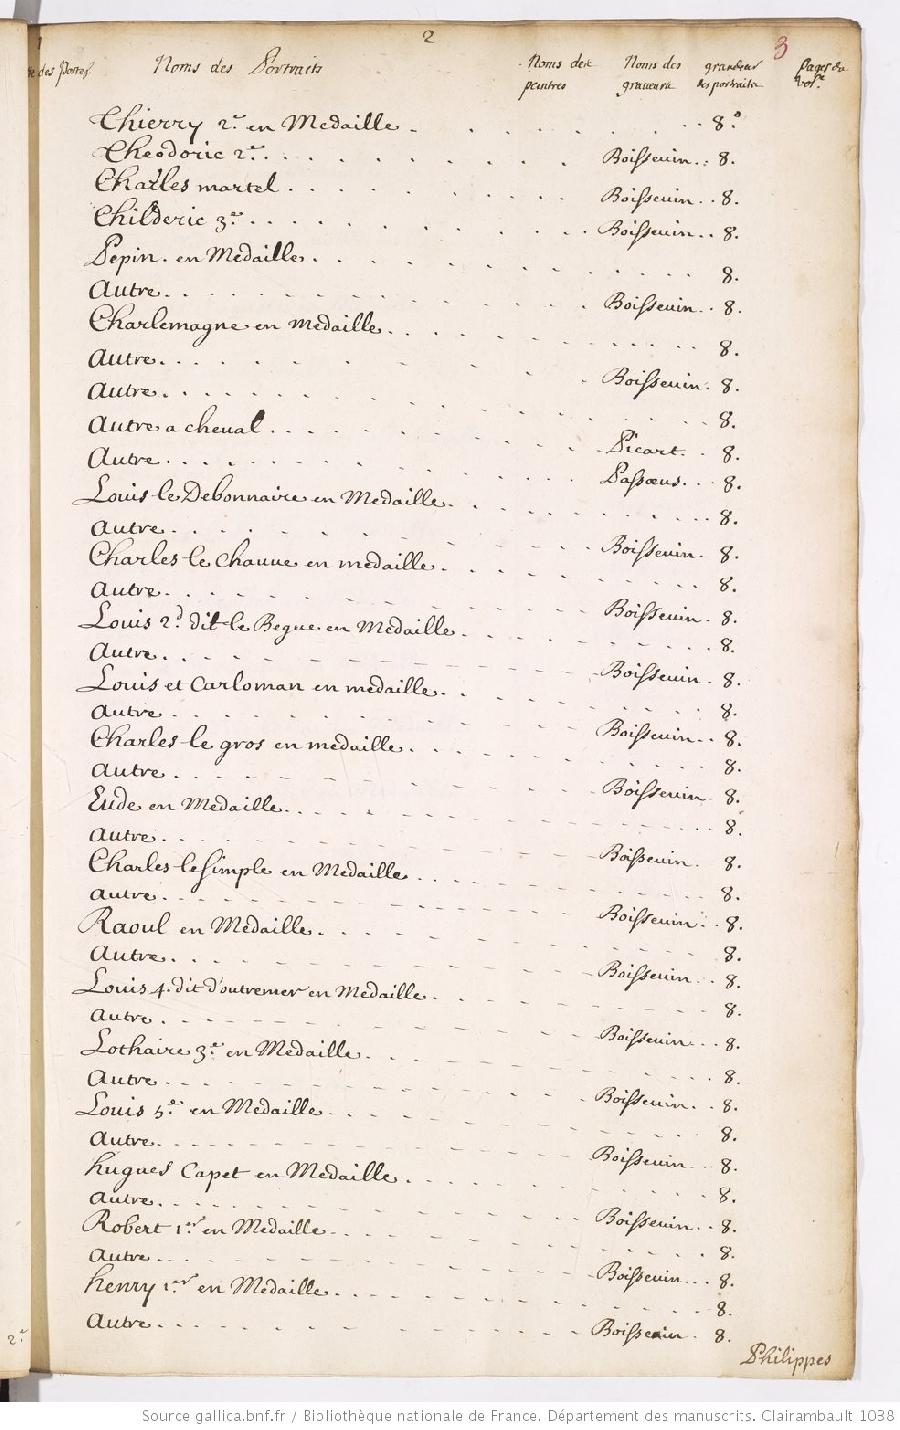 2
3
des portes
Noms des Portraits Noms des peintres Noms des graveurs grandeur des portraits Pages du vol.e
Thierry 2.e en Medaille. 8.o
Theodoric 2.e. Boisseuin. 8.
Charles martel. Boisseuin. 8.
Childeric 3.e. Boisseuin. 8.
Pepin. en Medaille. 8.
Autre. Boisseuin. 8.
Charlemagne en Medaille. 8.
Autre. Boisseuin. 8.
Autre. 8.
Autre a cheual. Picart. 8.
Autre. Passoeus. 8.
Louis-le Debonnaire en Medaille. 8.
Autre. Boisseuin. 8.
Charles-le Chauue en medaille. 8.
Autre. Boisseuin. 8.
Louis 2.d dit-le Begue en Medaille. 8.
Autre. Boisseuin. 8.
Louis et Carloman en medaille. 8.
Autre. Boisseuin. 8.
Charles-le gros en medaille. 8.
Autre. Boisseuin 8.
Eude en Medaille. 8.
Autre. Boisseuin. 8.
Charles-le simple en Medaille. 8.
Autre. Boisseuin. 8.
Raoul en Medaille. 8.
Autre. Boisseuin. 8.
Louis 4. dit d'outremer en Medaille. 8.
Autre. Boisseuin. 8.
Lothaire 3.e en Medaille. 8.
Autre. Boisseuin. 8.
Louis 5.e en Medaille. 8.
Autre. Boisseuin. 8.
hugues Capet en Medaille. 8.
Autre. Boisseuin. 8.
Robert 1.er en Medaille. 8.
Autre. Boisseuin. 8.
henry 1.er en Medaille. 8.
Autre. Boisseuin. 8.
Philippes
2.e
Source gallica.bnf.fr / Bibliothèque nationale de France. Département des manuscrits. Clairambault 1038